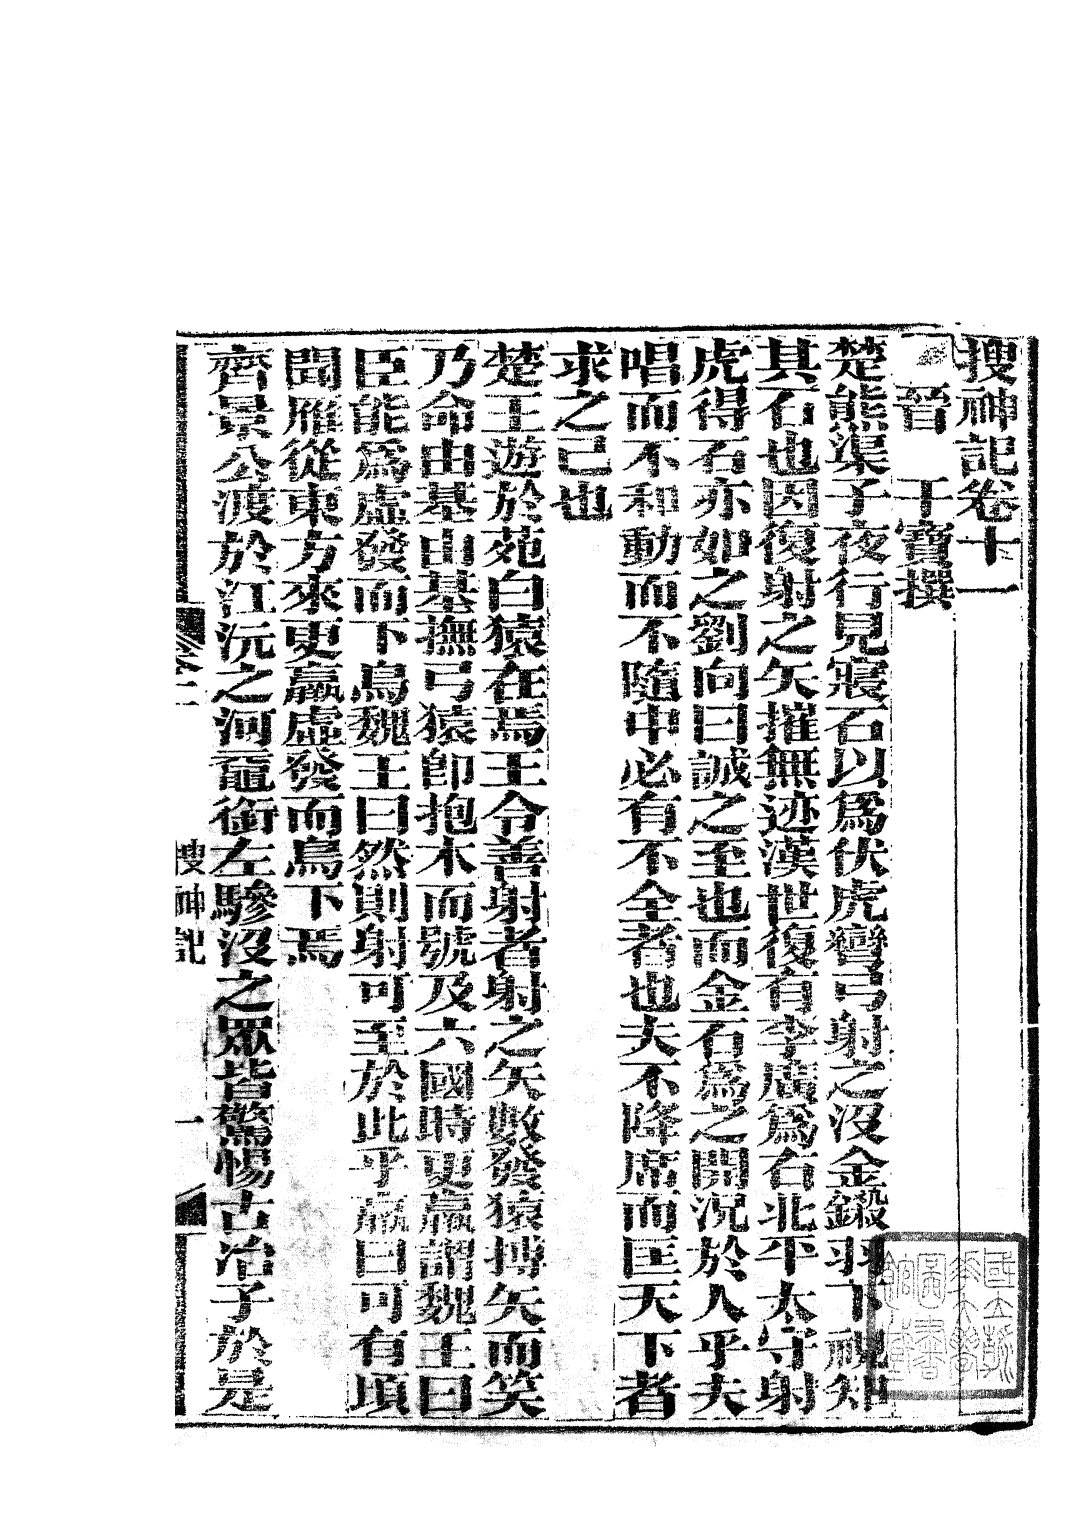 搜神記卷十一
晉 干寶撰
楚熊渠子夜行見寢石以爲伏虎彎弓射之沒金鎩羽下視知
其石也因復射之矢摧無迹漢世復有李廣爲右北平太守射
虎得石亦如之劉向曰誠之至也而金石爲之開況於人乎夫
唱而不和動而不隨中必有不全者也夫不降席而匡天下者
求之己也
楚王遊於苑白猿在焉王令善射者射之矢數發猿搏矢而笑
乃命由基由基撫弓猿卽抱木而號及六國時更羸謂魏王曰
臣能爲虛發而下鳥魏王曰然則射可至於此乎羸曰可有頃
聞雁從東方來更羸虛發而鳥下焉
齊景公渡於江沅之河黿銜左驂沒之眾皆驚惕古冶子於是
搜神記
一